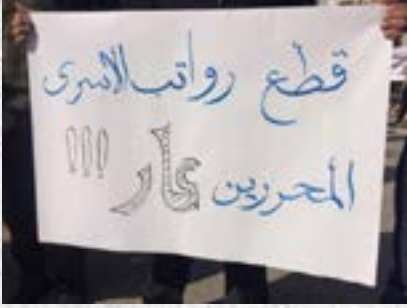 قطع رواتب الاسرى
المحررين عار !!!